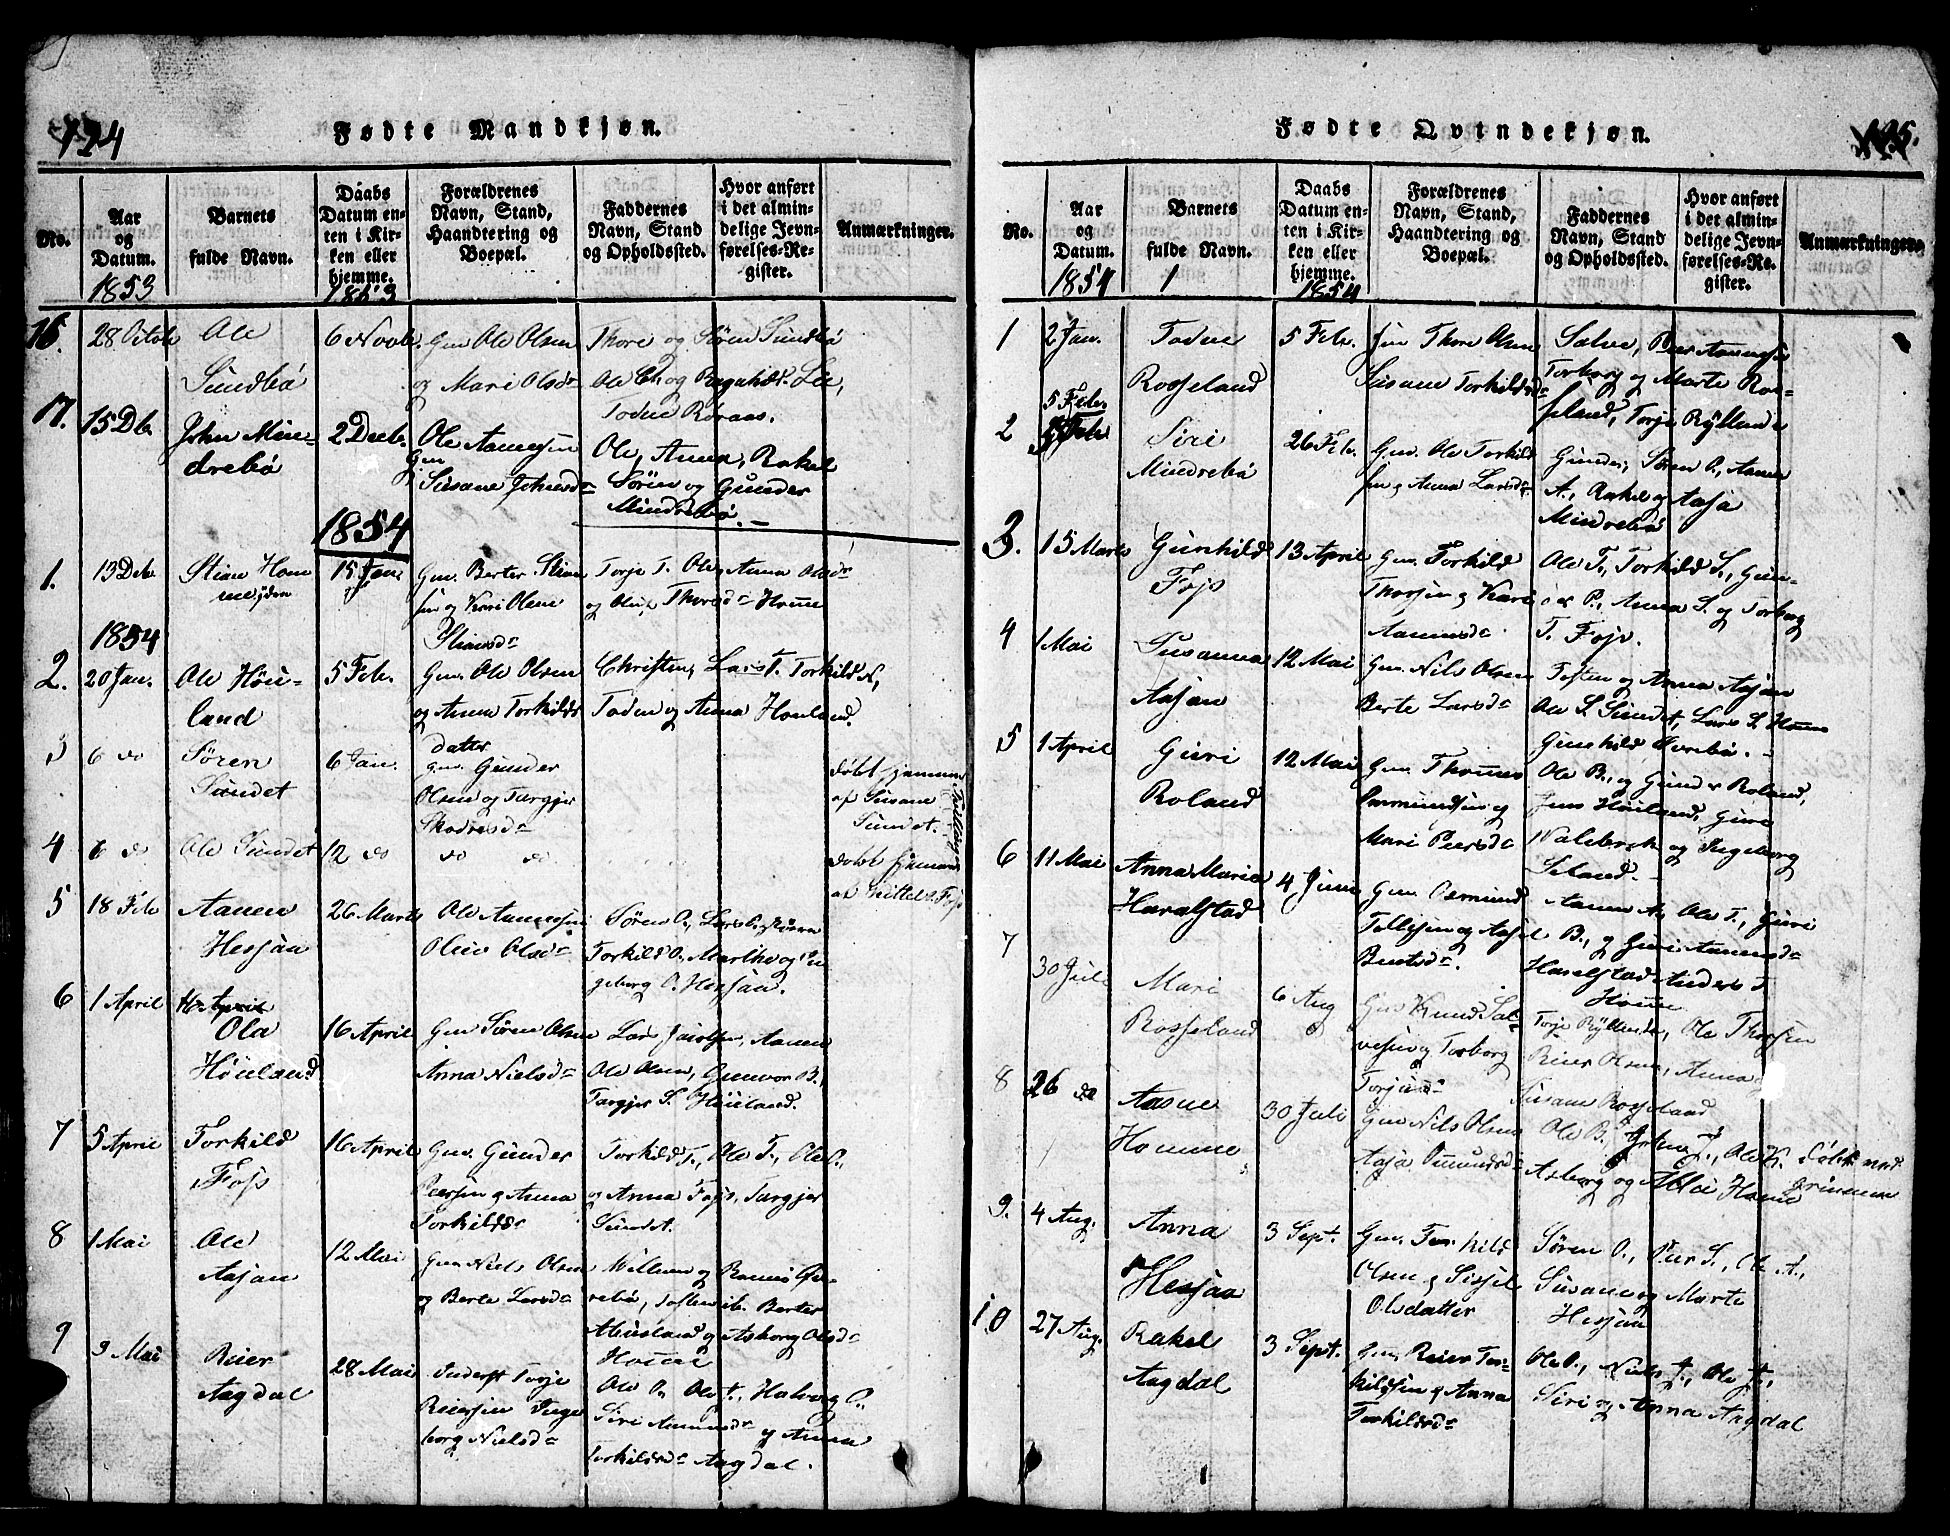 124
Fødte Mandkjøn.
No.
Aar og Datum.
Barnets fulde Navn.
Daabs Datum enten i Kirken eller hjemme.
Forældrenes Navn, Stand, Haandtering og Boepæl.
Faddernes Navn, Stand og Opholdssted.
Hvor anført i det almindelige Jevnførelses-Register.
Anmærkninger.
1853
1853
16.
28 Octob
Ole
Sundbø
6 Novb.
Gm. Ole Olsen
og Mari Olsdr
Thore og Søren Sundbø
Ole Ch og Ragnhild Lie,
Todne Røraas.
17.
15 Db.
John Min-
drebø
2 Decb.
Ole Aanensen
Gm
Susane Johnsdr
Ole, Anna, Rakel
Søren og Gunder
Mindrebø.
1854
1.
13 Deb
Stian Hom
15 Jan
Gm. Berter Stian
sen og Kari Olene
Stiansdr
Torje T. Ole, Anna Olsdr
Thorsdr Homme
1854
2.
20 Jan.
Ole Høie-
land
5 Feb.
Gm. Ole Olsen
og Anne Torkilds
datter
Christen, Lars T. Torkild N,
Todne og Anna Høieland.
3
6 do
Søren
Sundet
6 Jan.
gm. Gunder
Olsen og Targjer
døbt hjemme
af Susane
Sundet.
4
6 do
Ole Sundet
12 do
do do
døbt hjemme
af Kittel Fos
5
18 Feb
Aanen
Hesjaa
26 Marts
Ole Aanensen
Olene Olsdr
Søren O.,
Torkild O. Marthe og In
geborg O. Hesjaa.
6
1 April
16 April
Ola
Høieland
16 April
Gm Søren Olsen
Anna Nielsdr
Lars Jacobsen, Aanen
Ole Olsen, Gunvor B.,
Targjer S. Høieland.
7
5 April
Torkild
Fos
16 April
Gm. Gunder
Peersen og Anna
Torkildsdr
Torkild T., Ole T., Ole P.,
og Anna Fos, Targjer
Sundet.
8
1 Mai
Ole
Aasjan
12 Mai
Gm Niels Olsen
og Berte Larsdr
Willum og Ramus Øv-
rebø, Tosten ib. Berter
Asborg Olsdr
Homme
9
9 Mai
Reier
Aagdal
28 Mai
Inderst Torje
Reiersen Inge
borg Nielsdr
Ole O. Ole A., Halvorg O.
Siri Aanensdr og Anna
Torkildsdr Aagdal.
125.
Fødte Qvindekjøn.
No.
Aar og Datum.
Barnets fulde Navn.
Daabs Datum enten i Kirken eller hjemme.
Forældrenes Navn, Stand, Haandtering og Boepæl.
Faddernes Navn, Stand og Opholdssted.
Hvor anført i det almindelige Jevnførelses-Register.
Anmærkninger.
1854
1854
1
2 Jan.
Todne
Rosseland
5 Feb.
Gm Thore Olsen
Susane Torkildsdr
Salve, Peer Aanensen
Torborg og Marte Ros-
seland, Torje Rylland
2
5 Feb.
Siri
Mindrebø
26 Feb.
Gm. Ole Torkild
sen og Anna Larsdr
Gunder, Søren O., Aanen
A., Rakel og Aasja
Mindrebø
3.
15 Marts
Gunhild
Fos
13 April
Gm. Torkild
Thorsen og Kari
Aanensdr
Ole T., Torkild S., Gun-
der P., Anna S. og Torborg
T. Fos.
4
1 Mai
Susanna
Aasjan
12 Mai
Gm. Nils Olsen
Berte Larsdr
Tosten og Anna Aasjan
Ole S. Sundet, Lars S. Homme
Gunhild Øvrebø.
5
1 April
Guri
Roland
12 Mai
Gm. Thomas
Ommundsen og
Mari Peersdr
Ole B., og Gunder Roland,
Jens Høieland, Guri
Valebrok og Ingeborg
Iseland.
6
11 Mai
Anna Marie
Haralstad
4 Juni
Gm. Osmund
Tellefsen og Aasel
Berntsdr
Aanen A., Ole T., Guri
B., og Guri Aanensdr
Haralstad Anders T
Homme
7
30 Juli
Mari
Rosseland
6 Aug
Gm Knud Sal-
vesen og Torborg
Torjusdr
Torje Rylland, Ole Thorsen
Reier Olsen, Anna
Susane Rosseland
8
26 do
Aasne
Homme
30 Juli
Gm Nils Olsen
Aasja Omundsdr
Ole B. John T., Ole K.
Asborg og Abla Homme
9.
4 Aug.
Anna
Hesjaa
3 Sept.
Gm. Torkild
Olsen og Sissel
Olsdatter
Søren O., Peer S., Ole A.,
Susane og Marte
Hesjaa
10
27 Aug.
Rakel
Aagdal
3 Sept.
Gm. Reier Tor-
kildsen og Anna
Torkildsdr
Ole O., Niels J., Ole J.,
Siri og Anna Aagdal